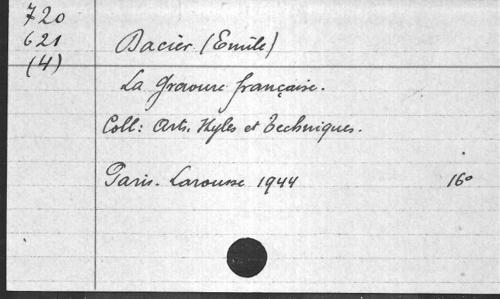 720
621
(4)
Dacier (Emile)
La Gravure française.
Coll: Arts, Styles et Techniques.
Paris. Larousse 1944 16°